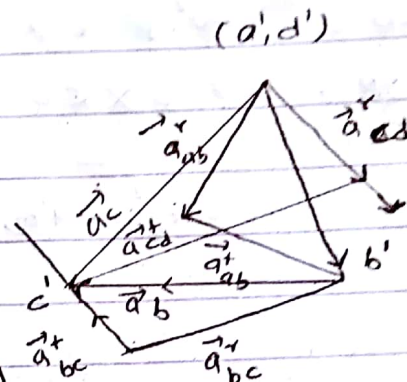 (a', d')
a^r_ab
a^r_cd
a_c
a^t_cd
a^t_ab
b'
c'
a_b
a^t_bc
a^r_bc